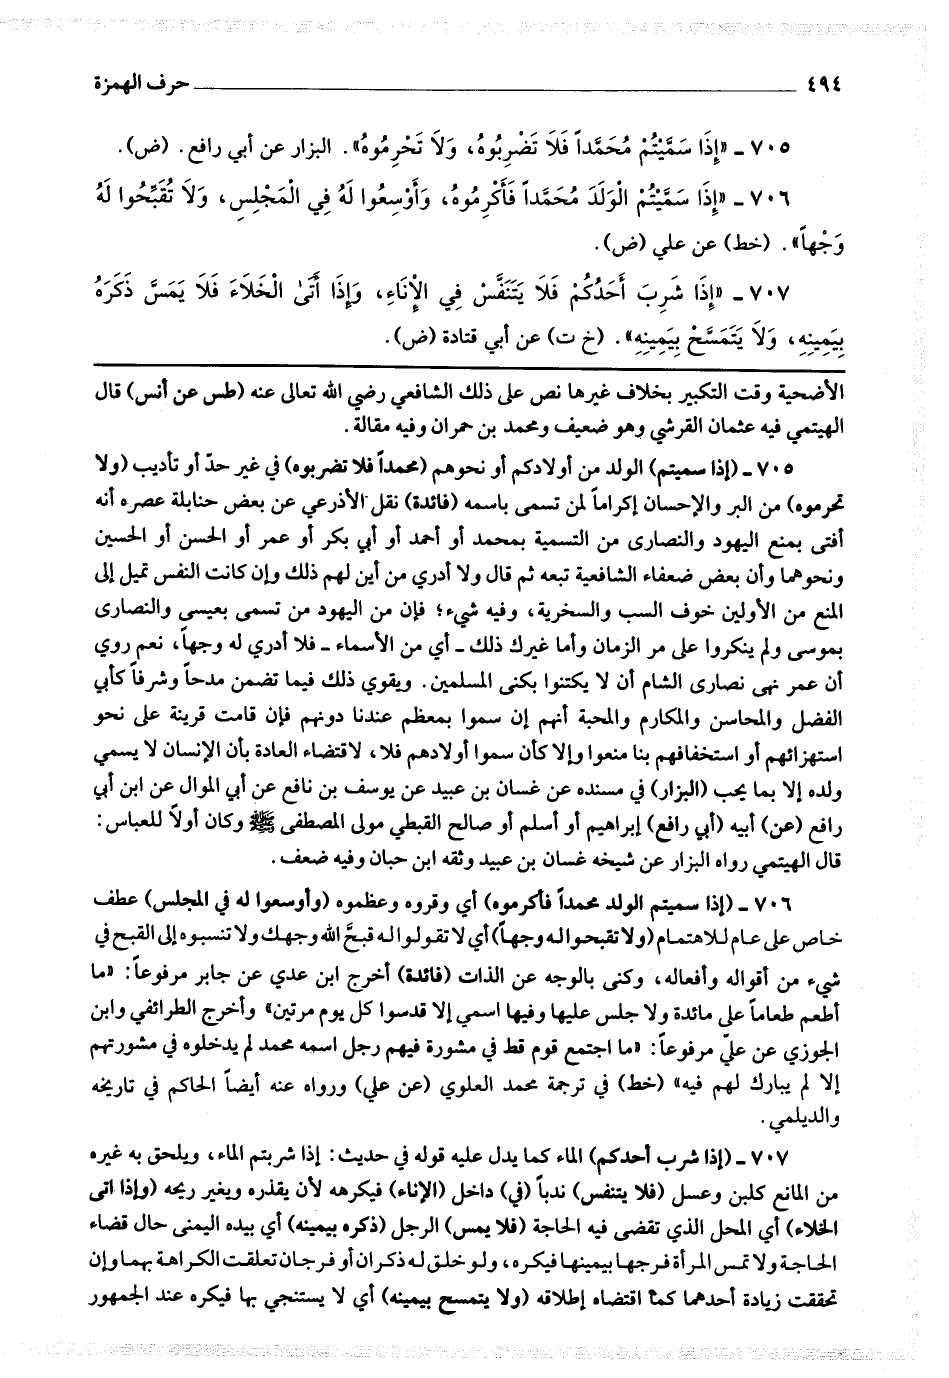 ٤٩٤ حرف الهمزة
٧٠٥ ـ «إِذَا سَمَّيْتُمْ مُحَمَّداً فَلَا تَضْرِبُوهُ، وَلَا تَحْرِمُوهُ». البزار عن أبي رافع. (ض).
٧٠٦ ـ «إِذَا سَمَّيْتُمْ الْوَلَدَ مُحَمَّداً فَأَكْرِمُوهُ، وَأَوْسِعُوا لَهُ فِي الْمَجْلِسِ، وَلَا تُقَبِّحُوا لَهُ
وَجْهاً». (خط) عن علي (ض).
٧٠٧ ـ «إِذَا شَرِبَ أَحَدُكُمْ فَلَا يَتَنَفَّسْ فِي الْإِنَاءِ، وَإِذَا أَتَىٰ الْخَلَاءَ فَلَا يَمَسَّ ذَكَرَهُ
بِيَمِينِهِ، وَلَا يَتَمَسَّحْ بِيَمِينِهِ». (خ ت) عن أبي قتادة (ض).
الأضحية وقت التكبير بخلاف غيرها نص على ذلك الشافعي رضي الله تعالى عنه (طس عن أنس) قال
الهيتمي فيه عثمان القرشي وهو ضعيف ومحمد بن حمران وفيه مقالة.
٧٠٥ ـ (إذا سميتم) الولد من أولادكم أو نحوهم (محمداً فلا تضربوه) في غير حدّ أو تأديب (ولا
تحرموه) من البر والإحسان إكراماً لمن تسمى باسمه (فائدة) نقل الأذرعي عن بعض حنابلة عصره أنه
أفتى بمنع اليهود والنصارى من التسمية بمحمد أو أحمد أو أبي بكر أو عمر أو الحسن أو الحسين
ونحوهما وأن بعض ضعفاء الشافعية تبعه ثم قال ولا أدري من أين لهم ذلك وإن كانت النفس تميل إلى
المنع من الأولين خوف السب والسخرية، وفيه شيء؛ فإن من اليهود من تسمى بعيسى والنصارى
بموسى ولم ينكروا على مر الزمان وأما غيرك ذلك ـ أي من الأسماء ـ فلا أدري له وجهاً، نعم روي
أن عمر نهى نصارى الشام أن لا يكتنوا بكنى المسلمين. ويقوي ذلك فيما تضمن مدحاً وشرفاً كأبي
الفضل والمحاسن والمكارم والمحبة أنهم إن سموا بمعظم عندنا دونهم فإن قامت قرينة على نحو
استهزائهم أو استخفافهم بنا منعوا وإلا كأن سموا أولادهم فلا، لاقتضاء العادة بأن الإنسان لا يسمي
ولده إلا بما يحب (البزار) في مسنده عن غسان بن عبيد عن يوسف بن نافع عن أبي الموال عن ابن أبي
رافع (عن) أبيه (أبي رافع) إبراهيم أو أسلم أو صالح القبطي مولى المصطفى ﷺ وكان أولاً للعباس:
قال الهيتمي رواه البزار عن شيخه غسان بن عبيد وثقه ابن حبان وفيه ضعف.
٧٠٦ ـ (إذا سميتم الولد محمداً فأكرموه) أي وقروه وعظموه (وأوسعوا له في المجلس) عطف
خاص على عام للاهتمام (ولا تقبحوا له وجهاً) أي لا تقولوا له قبحَّ الله وجهك ولا تنسبوه إلى القبح في
شيء من أقواله وأفعاله، وكنى بالوجه عن الذات (فائدة) أخرج ابن عدي عن جابر مرفوعاً: «ما
أطعم طعاماً على مائدة ولا جلس عليها وفيها اسمي إلا قدسوا كل يوم مرتين» وأخرج الطرائفي وابن
الجوزي عن عليّ مرفوعاً: «ما اجتمع قوم قط في مشورة فيهم رجل اسمه محمد لم يدخلوه في مشورتهم
إلا لم يبارك لهم فيه» (خط) في ترجمة محمد العلوي (عن علي) ورواه عنه أيضاً الحاكم في تاريخه
والديلمي.
٧٠٧ ـ (إذا شرب أحدكم) الماء كما يدل عليه قوله في حديث: إذا شربتم الماء، ويلحق به غيره
من المائع كلبن وعسل (فلا يتنفس) ندباً (في) داخل (الإناء) فيكرهه لأن يقذره ويغير ريحه (وإذا اتى
الخلاء) أي المحل الذي تقضى فيه الحاجة (فلا يمس) الرجل (ذكره بيمينه) أي بيده اليمنى حال قضاء
الحاجة ولا تمس المرأة فرجها بيمينها فيكره، ولو خلق له ذكران أو فرجان تعلقت الكراهة بهما وإن
تحققت زيادة أحدهما كما اقتضاه إطلاقه (ولا يتمسح بيمينه) أي لا يستنجي بها فيكره عند الجمهور